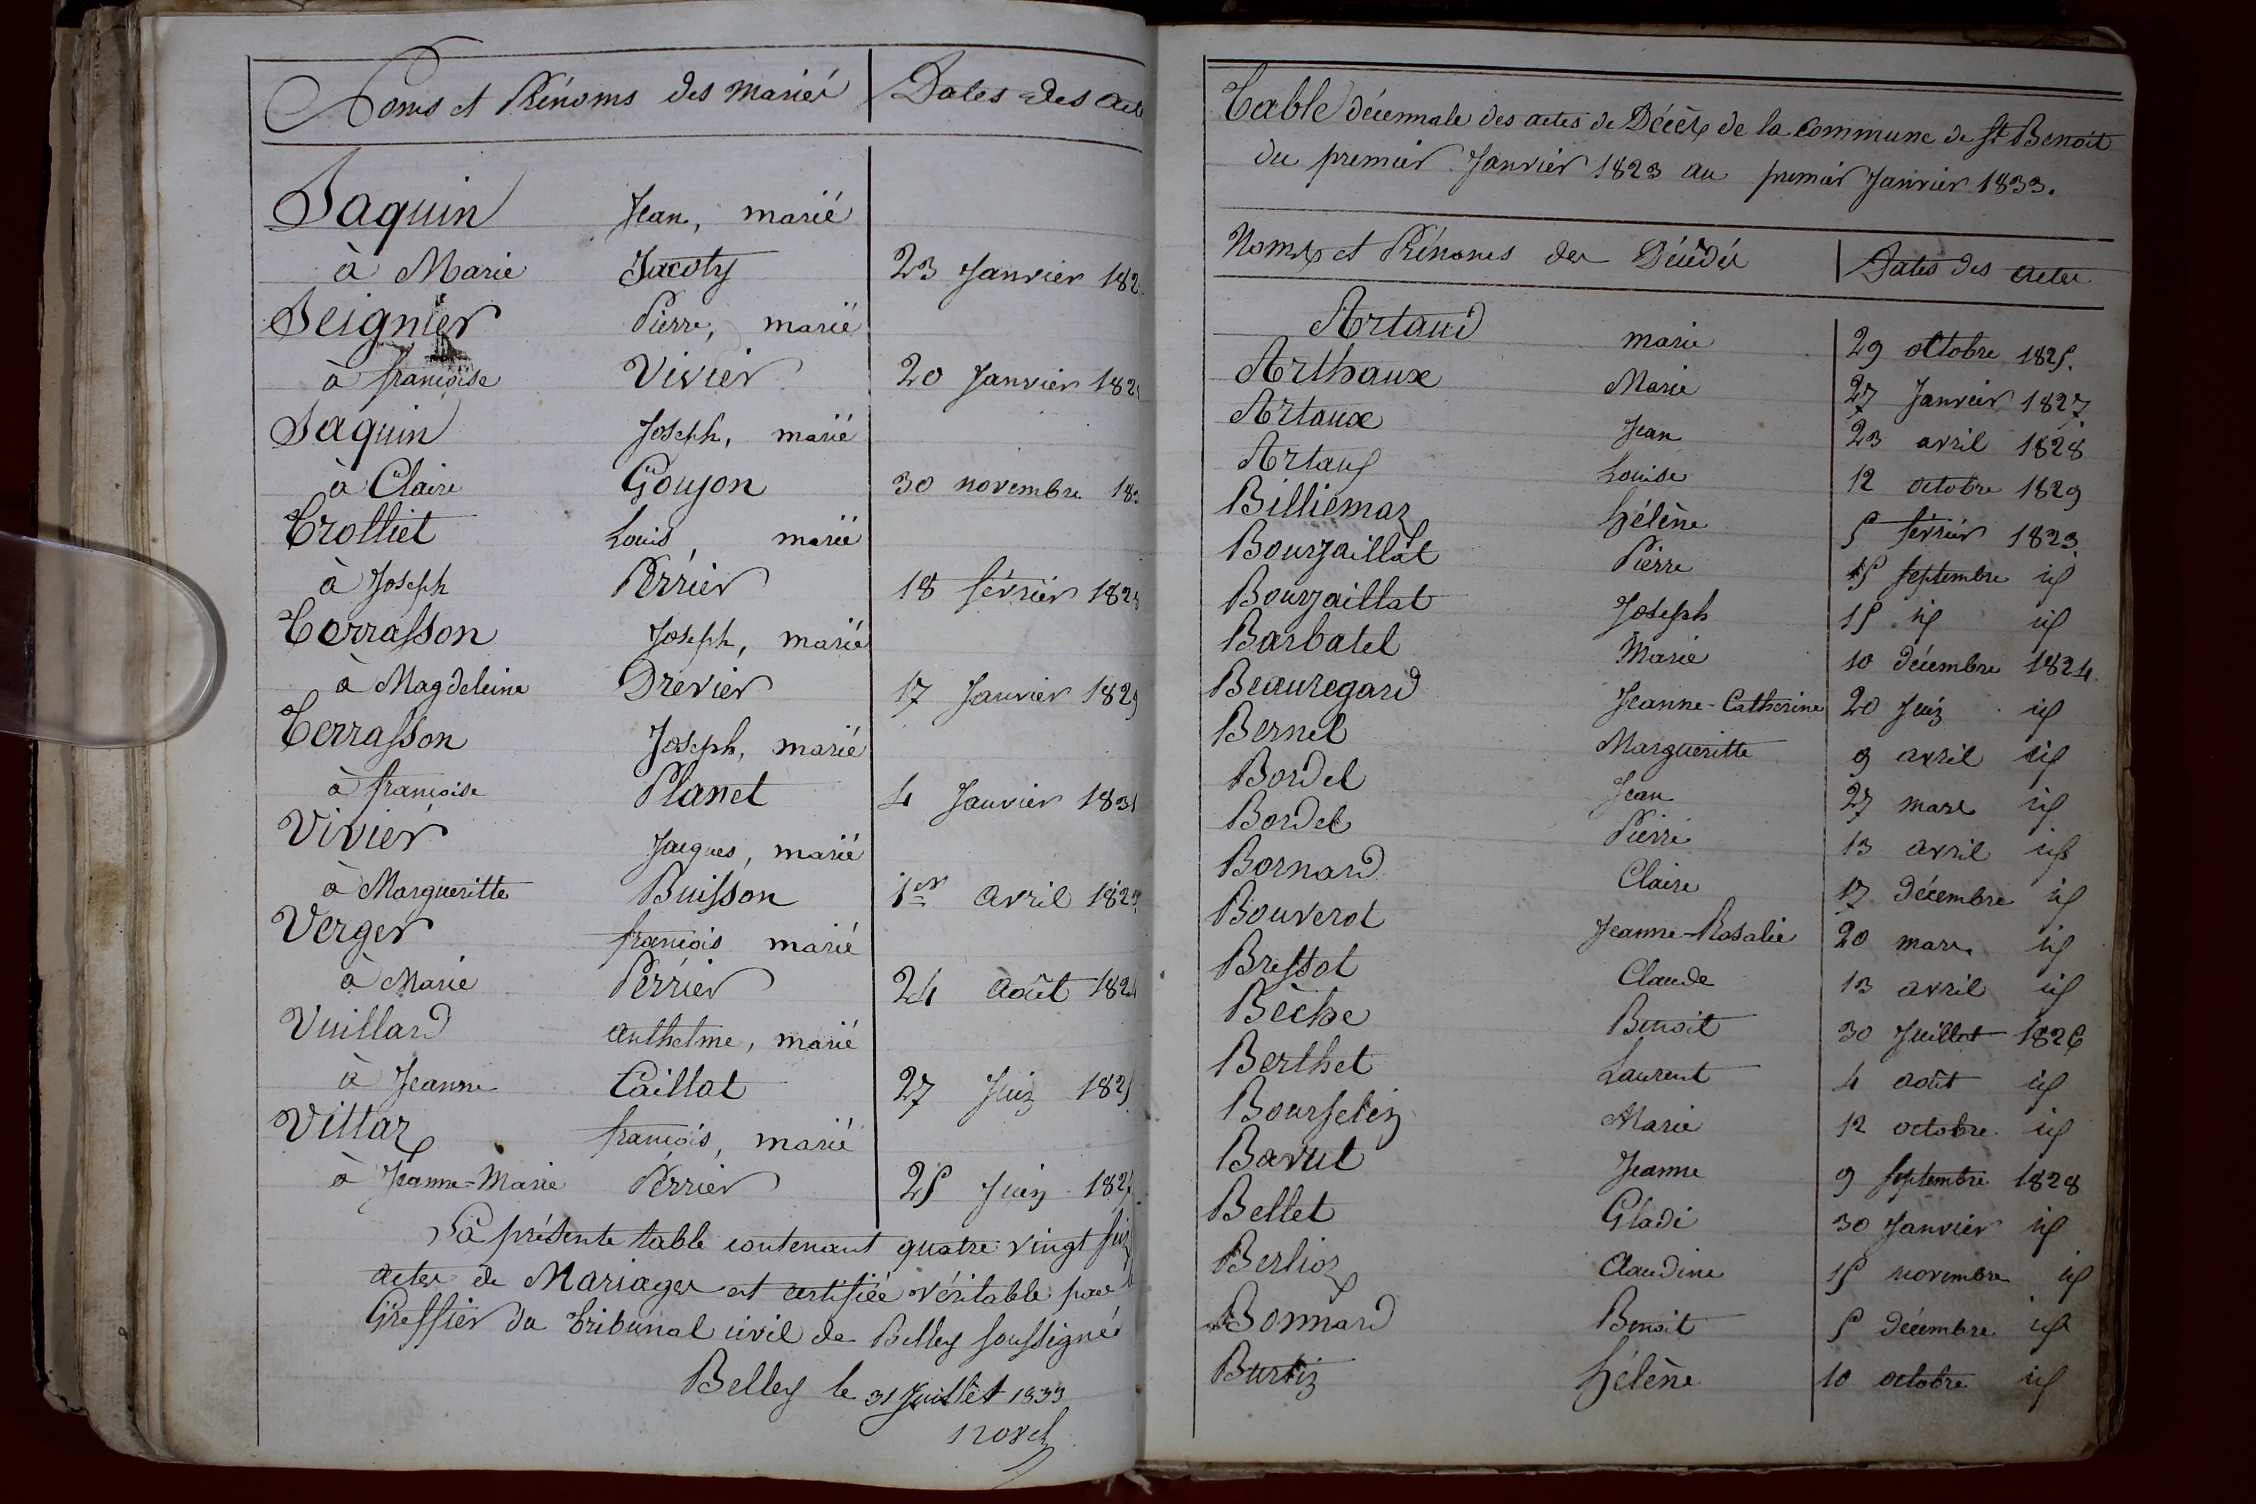 Noms et Prénoms des Mariés Dates des act
Saquin Jean, marié
à Marie Jacoty 23 Janvier 182
Seignier Pierre, marié
à françoise Vivier 20 Janvier 182
Saquin Joseph, marié
à Claire Goujon 30 novembre 18
Trolliet Louis, marié
à Joseph Perrier 18 février 182
Terrasson Joseph, marié
à Magdeleine Drevier 17 Janvier 182
Terrasson Joseph, marié
à françoise Planet 4 Janvier 1831
Vivier Jacques, marié
à Margueritte Buisson 1er avril 182
Verger françois marié
à Marie Perrier 24 Août 182
Vuillard anthelme, marié
à Jeanne Caillat 27 Juin 182
Villaz françois, marié
à Jeanne-Marie Perrier 25 Juin 182
La présente table contenant quatre vingt six
actes de Mariages est certifiée véritable par
Greffier du tribunal civil de Belley soussigné
Belley le 31 Juillet 1833
Table décennale des actes de Décès de la commune de St Benoît
du premier Janvier 1823 au premier Janvier 1833.
Noms et Prénoms des Décédés Dates des actes
Artaud marie 29 octobre 1825.
Arthaux Marie 27 Janvier 1827
Artaux Jean 23 avril 1828
Artaus Louise 12 octobre 1829
Billiemaz hélène 5 février 1823
Bourjaillat Pierre 15 septembre id
Bourjaillat Joseph 15 id id
Barbatel Marie 10 décembre 1824
Beauregard Jeanne-Catherine 20 Juin id
Bernel Margueritte 9 avril id
Bordel Jean 27 mars id
Bordel Pierre 13 avril id
Bornard Claire 17 décembre id
Bouverot Jeanne-Rosalie 20 mars id
Bressot Claude 13 avril id
Bèche Benoit 30 Juillet 1826
Berthet Laurent 4 août id
Bourselin Marie 12 octobre id
Bavut Jeanne 9 septembre 1828
Bellet Gladi 30 Janvier id
Berlioz Claudine 15 novembre id
Bonnard Benoit 5 décembre id
Burtin hélène 10 octobre id